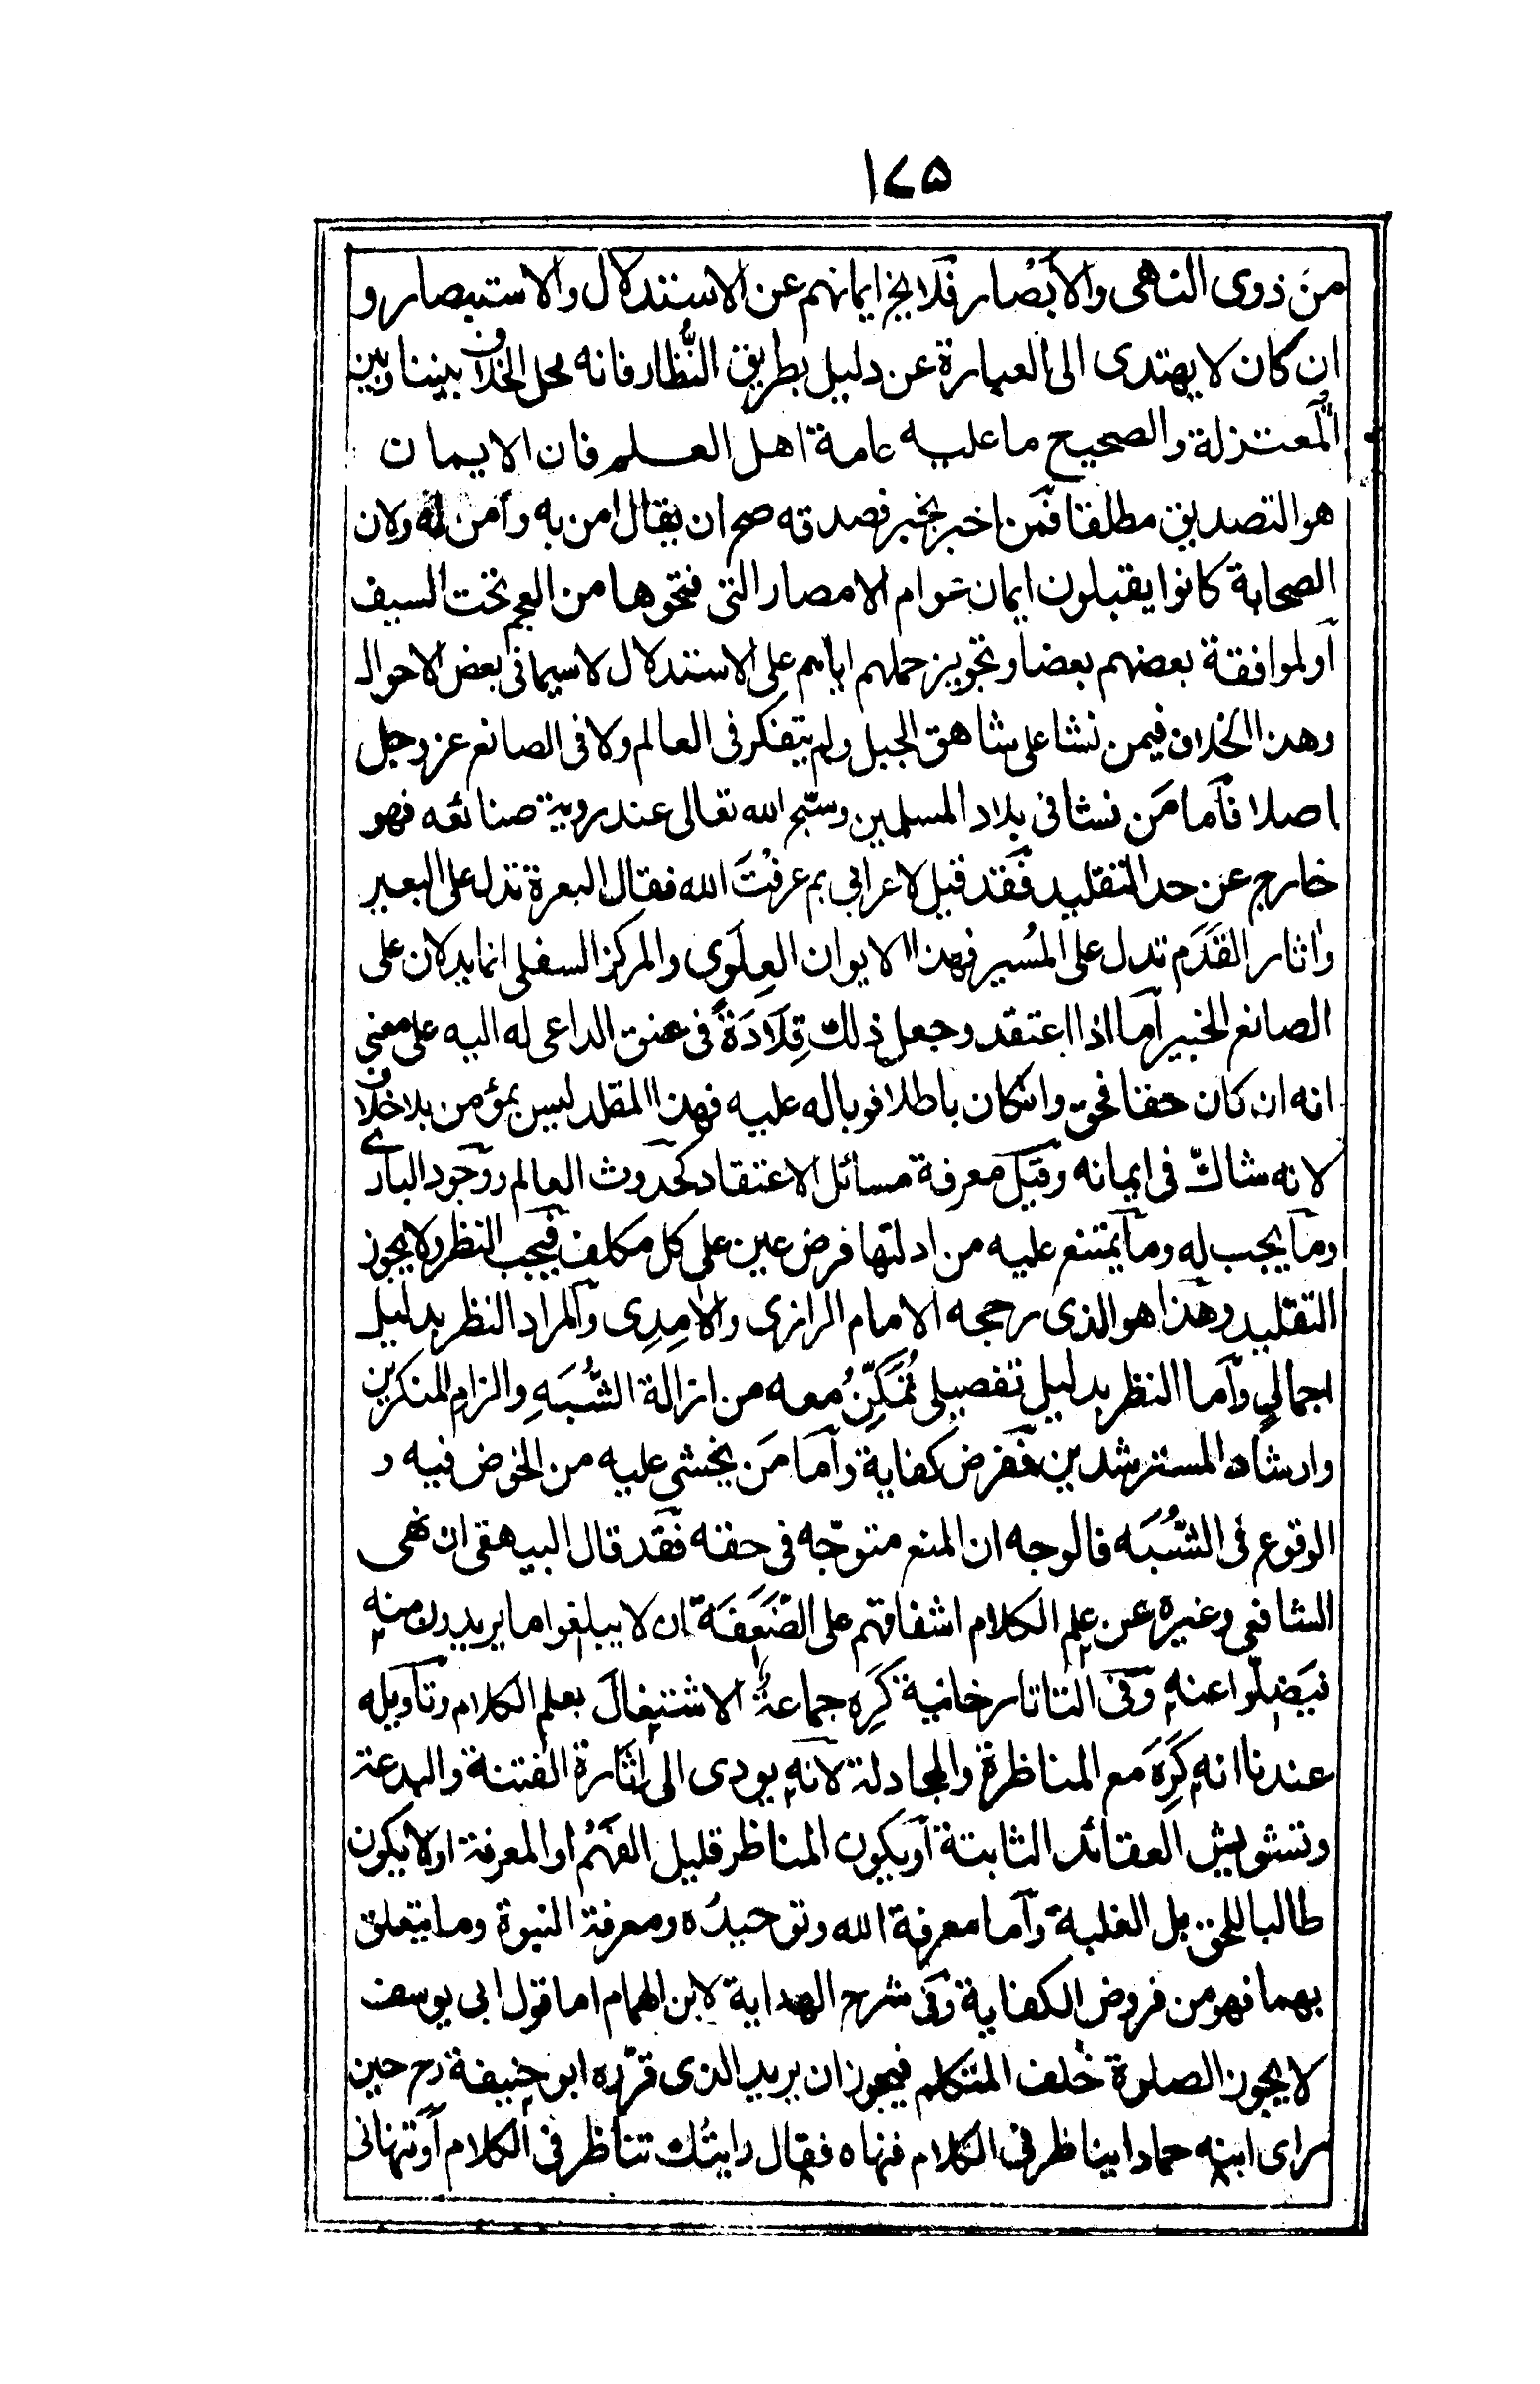 ١٧٥
من ذوى النهى والابصار فلا يخ ايمانهم عن الاستدلال والاستبصار و
ان كان لا يهتدى الى العبارة عن دليل بطريق النظار فانه محل الخلاف بيننا وبين
المعتزلة والصحيح ما عليه عامة اهل العلم فان الايمان
هو التصديق مطلقا فمن اخبر بخبر فصدقه صح ان يقال امن به وامن له ولان
الصحابة كانوا يقبلون ايمان عوام الامصار التى فتحوها من العجم تحت السيف
او لموافقة بعضهم بعضا وتجويز حملهم اياهم على الاستدلال لا سيما فى بعض الاحوال
وهذا الخلاف فيمن نشا على شاهق الجبل ولم يتفكر فى العالم ولا فى الصانع عز وجل
اصلا فاما من نشا فى بلاد المسلمين وسبح الله تعالى عند روية صنائعه فهو
خارج عن حد التقليد فقد قيل لاعرابي بم عرفت الله فقال البعرة تدل على البعير
واثار القدم تدل على المسير فهذا الايوان العلوى والمركز السفلى انما يدلان على
الصانع الخبير اما اذا اعتقد وجعل ذلك قلادة فى عنق الداعى له اليه على معنى
انه ان كان حقا فحق وانكان باطلا فوباله عليه فهذا المقلد ليس بمؤمن بلا خلاف
لانه شاكّ فى ايمانه وقيل معرفة مسائل الاعتقاد كحدوث العالم ووجود البارى
وما يجب له وما يمتنع عليه من ادلتها فرض عين على كل مكلف فيجب النظر ولا يجوز
التقليد وهذا هو الذى رجحه الامام الرازى والآمدى والمراد النظر بدليل
اجمالى واما النظر بدليل تفصيلى تمكّن معه من ازالة الشُّبَهِ والزام المنكرين
وارشاد المسترشدين ففرض كفاية واما من يخشى عليه من الخوض فيه و
الوقوع فى الشُّبَه فالوجه ان المنع متوجّه فى حقه فقد قال البيهقى ان نهى
الشافعى وغيره عن علم الكلام اشفاقهم على الضَعَفَة ان لا يبلغوا ما يريدون منه
فيَضِلّوا عنه وفى التاتارخانية كَرِه جماعةٌ الاشتغالَ بعلم الكلام وتاويله
عندنا انه كَرِهَ مع المناظرة والمجادلة لانه يودى الى اثارة الفتنة والبدعة
وتشويش العقائد الثابتة او يكون المناظر قليل الفهم او المعرفة او لا يكون
طالبا للحق بل الغلبة واما معرفة الله وتوحيده ومعرفة النبوة وما يتعلق
بهما فهو من فروض الكفاية وفى شرح الهداية لابن الهمام اما قول ابى يوسف
لا يجوز الصلوة خلف المتكلم فيجوز ان يريد الذى قرّره ابو حنيفة رح حين
راى ابنه حمادا يناظر فى الكلام فنهاه فقال رايتُك تناظر فى الكلام اَوَتنهانى